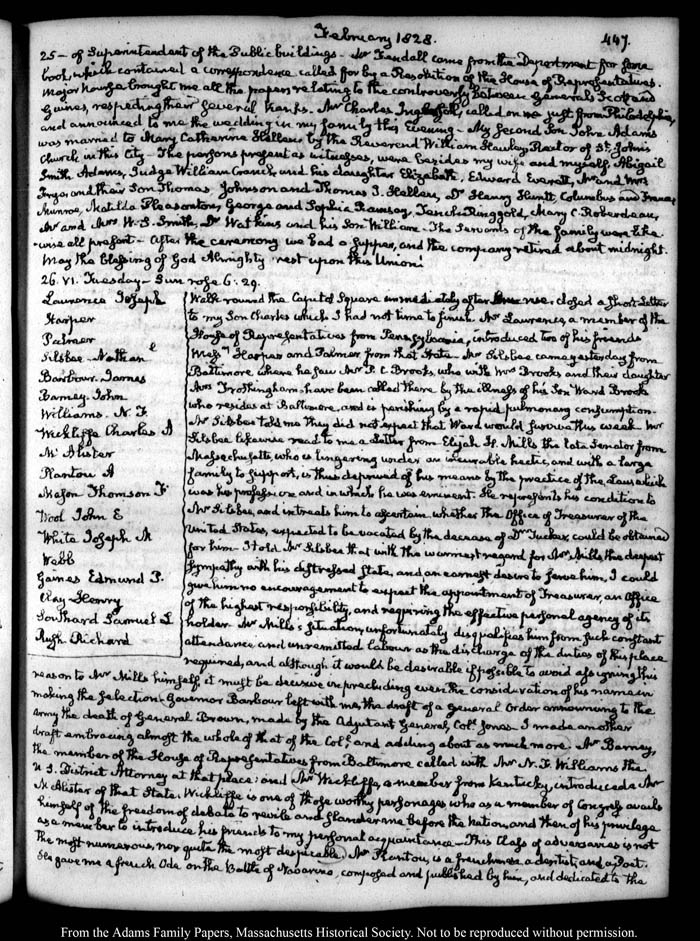 February 1828.
447.
25— of Superintendent of the Public buildings— Mr Kendall came from the Department for some
book, which contained a correspondence called for by a Resolution of the House of Representatives.
Major brought me all the papers relating to the controversy between Generals Scott and
Gaines, respecting their several ranks. Mr Charles Ingersoll, called on me just from Philadelphia,
and announced to me the wedding in my family this Evening— My second Son John Adams
was married to Mary Catharine Hellen by the Reverend William Hawley Rector of St. John's
Church in this City— The persons present as witnesses, were besides my wife and myself, Abigail
Smith Adams, Judge William Cranch, and his daughter Elizabeth, Edward Everett, Mr and Mrs
Frye and their Son Thomas, Johnson and Thomas J. Hellen, Dr Henry Huntt, Columbus and
Munroe, Matilda Pleasonton, George and Sophia Ramsay, Tench Ringgold, Mary C Roberdeau,
Mr and Mrs W. S. Smith, Dr Watkins and his Son William— The Servants of the family were like
-wise all present— After the ceremony we had a supper, and the company retired about midnight.
May the blessing of God Almighty rest upon this Union!
26. VI. Tuesday— Sun rose 6. 29.
Lawrence Joseph
Harper
Palmer
Silsbee— Nathanl
Barbour. James
Barney John
Williams. N. F
Wickliffe Charles A
McAlister
Plantou A
Mason Thomson F
Wool John E
White Joseph M
Webb
Gaines Edmund P.
Clay Henry
Southard Samuel L
Rush Richard
Walk round the Capitol Square immediately after Sun rise, closed a short Letter
to my Son Charles which I had not time to finish. Mr Lawrence, a member of the
House of Representatives from Pennsylvania, introduced two of his friends
Messrs Harper and Palmer from that State— Mr Silsbee came yesterday from
Baltimore where he saw Mr P. C. Brooks, who with Mrs Brooks and their daughter
Mrs Frothingham have been called there by the illness of his Son Ward Brooks
who resides at Baltimore, and is perishing by a rapid pulmonary consumption.
Mr Silsbee told me they did not expect that Ward would survive this week. Mr
Silsbee likewise read to me a Letter from Elijah H. Mills the late Senator from
Massachusetts, who is lingering under an incurable hectic, and with a large
family to support, is thus deprived of his means by the practice of the Law which
was his profession and in which he was eminent. He represents his condition to
Mr Silsbee, and intreats him to ascertain whether the Office of Treasurer of the
United States, expected to be vacated by the decease of Dr Tucker, could be obtained
for him— I told Mr Silsbee that with the warmest regard for Mr Mills the deepest
sympathy with his distressed state, and an earnest desire to serve him, I could
give him no encouragement to expect the appointment of Treasurer, an Office
of the highest responsibility, and requiring the effective personal agency of its
holder. Mr Mills's situation, unfortunately disqualifies him from such constant
attendance and unremitted labour as the discharge of the duties of this place
required, and although it would be desirable if possible to avoid assigning this
reason to Mr Mills himself, it must be decisive in precluding even the consideration of his name in
making the selection. Governor Barbour left with me, the draft of a general Order announcing to the
Army the death of General Brown, made by the Adjutant General, Col. Jones— I made another
draft embracing almost the whole of that of the Col. and adding about as much more. Mr Barney,
the member of the House of Representatives from Baltimore called with Mr N. F. Williams the
U S. District Attorney at that place; and Mr Wickliffe, a member from Kentucky, introduced a Mr
McAlister of that State. Wickliffe is one of those worthy personages who as a member of Congress avails
himself of the freedom of debate to revile and slander me before the Nation, and then of his privilege
as a member to introduce his friends to my personal acquaintance— This class of adversaries is not
the most numerous, nor quite the most despicable. Mr Plantou, is a frenchman, a dentist, and a Poet.
He gave me a french Ode on the Battle of Navarino, composed and published by him, and dedicated to the
From the Adams Family Papers, Massachusetts Historical Society. Not to be reproduced without permission.